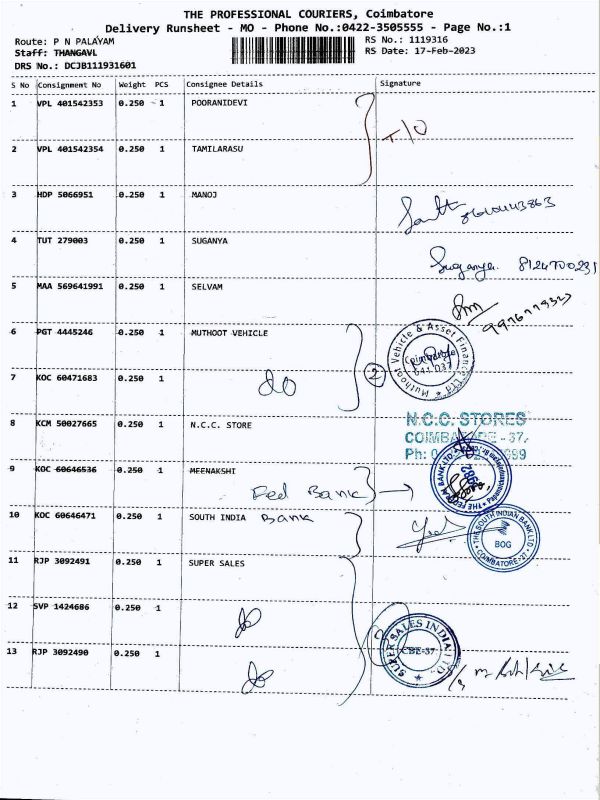 THE PROFESSIONAL COURIERS, Coimbatore
Delivery Runsheet - MO - Phone No.:0422-3505555 - Page No.:1
Route: P N PALAYAM
RS No.: 1119316
Staff: THANGAVL
RS Date: 17-Feb-2023
DRS No.: DCJB111931601
S No Consignment No Weight PCS Consignee Details Signature
1 VPL 401542353 0.250 1 POORANIDEVI
T/O
2 VPL 401542354 0.250 1 TAMILARASU
3 HDP 5066951 0.250 1 MANOJ
4 TUT 279003 0.250 1 SUGANYA
Suganya. 8124700231
5 MAA 569641991 0.250 1 SELVAM
6 PGT 4445246 0.250 1 MUTHOOT VEHICLE
Muthoot Vehicle & Asset Finance Ltd
Coimbatore
641 037
7 KOC 60471683 0.250 1
do
2
8 KCM 50027665 0.250 1 N.C.C. STORE
N.C.C. STORES
COIMBATORE - 37.
Ph:
9 KOC 60646536 0.250 1 MEENAKSHI
Fed Bank
THE FEDERAL BANK LTD.
10 KOC 60646471 0.250 1 SOUTH INDIA Bank
THE SOUTH INDIAN BANK LTD.
BOG
COIMBATORE-37
11 RJP 3092491 0.250 1 SUPER SALES
12 SVP 1424686 0.250 1
do
SUPER SALES INDIA LTD
CBE-37
13 RJP 3092490 0.250 1
do